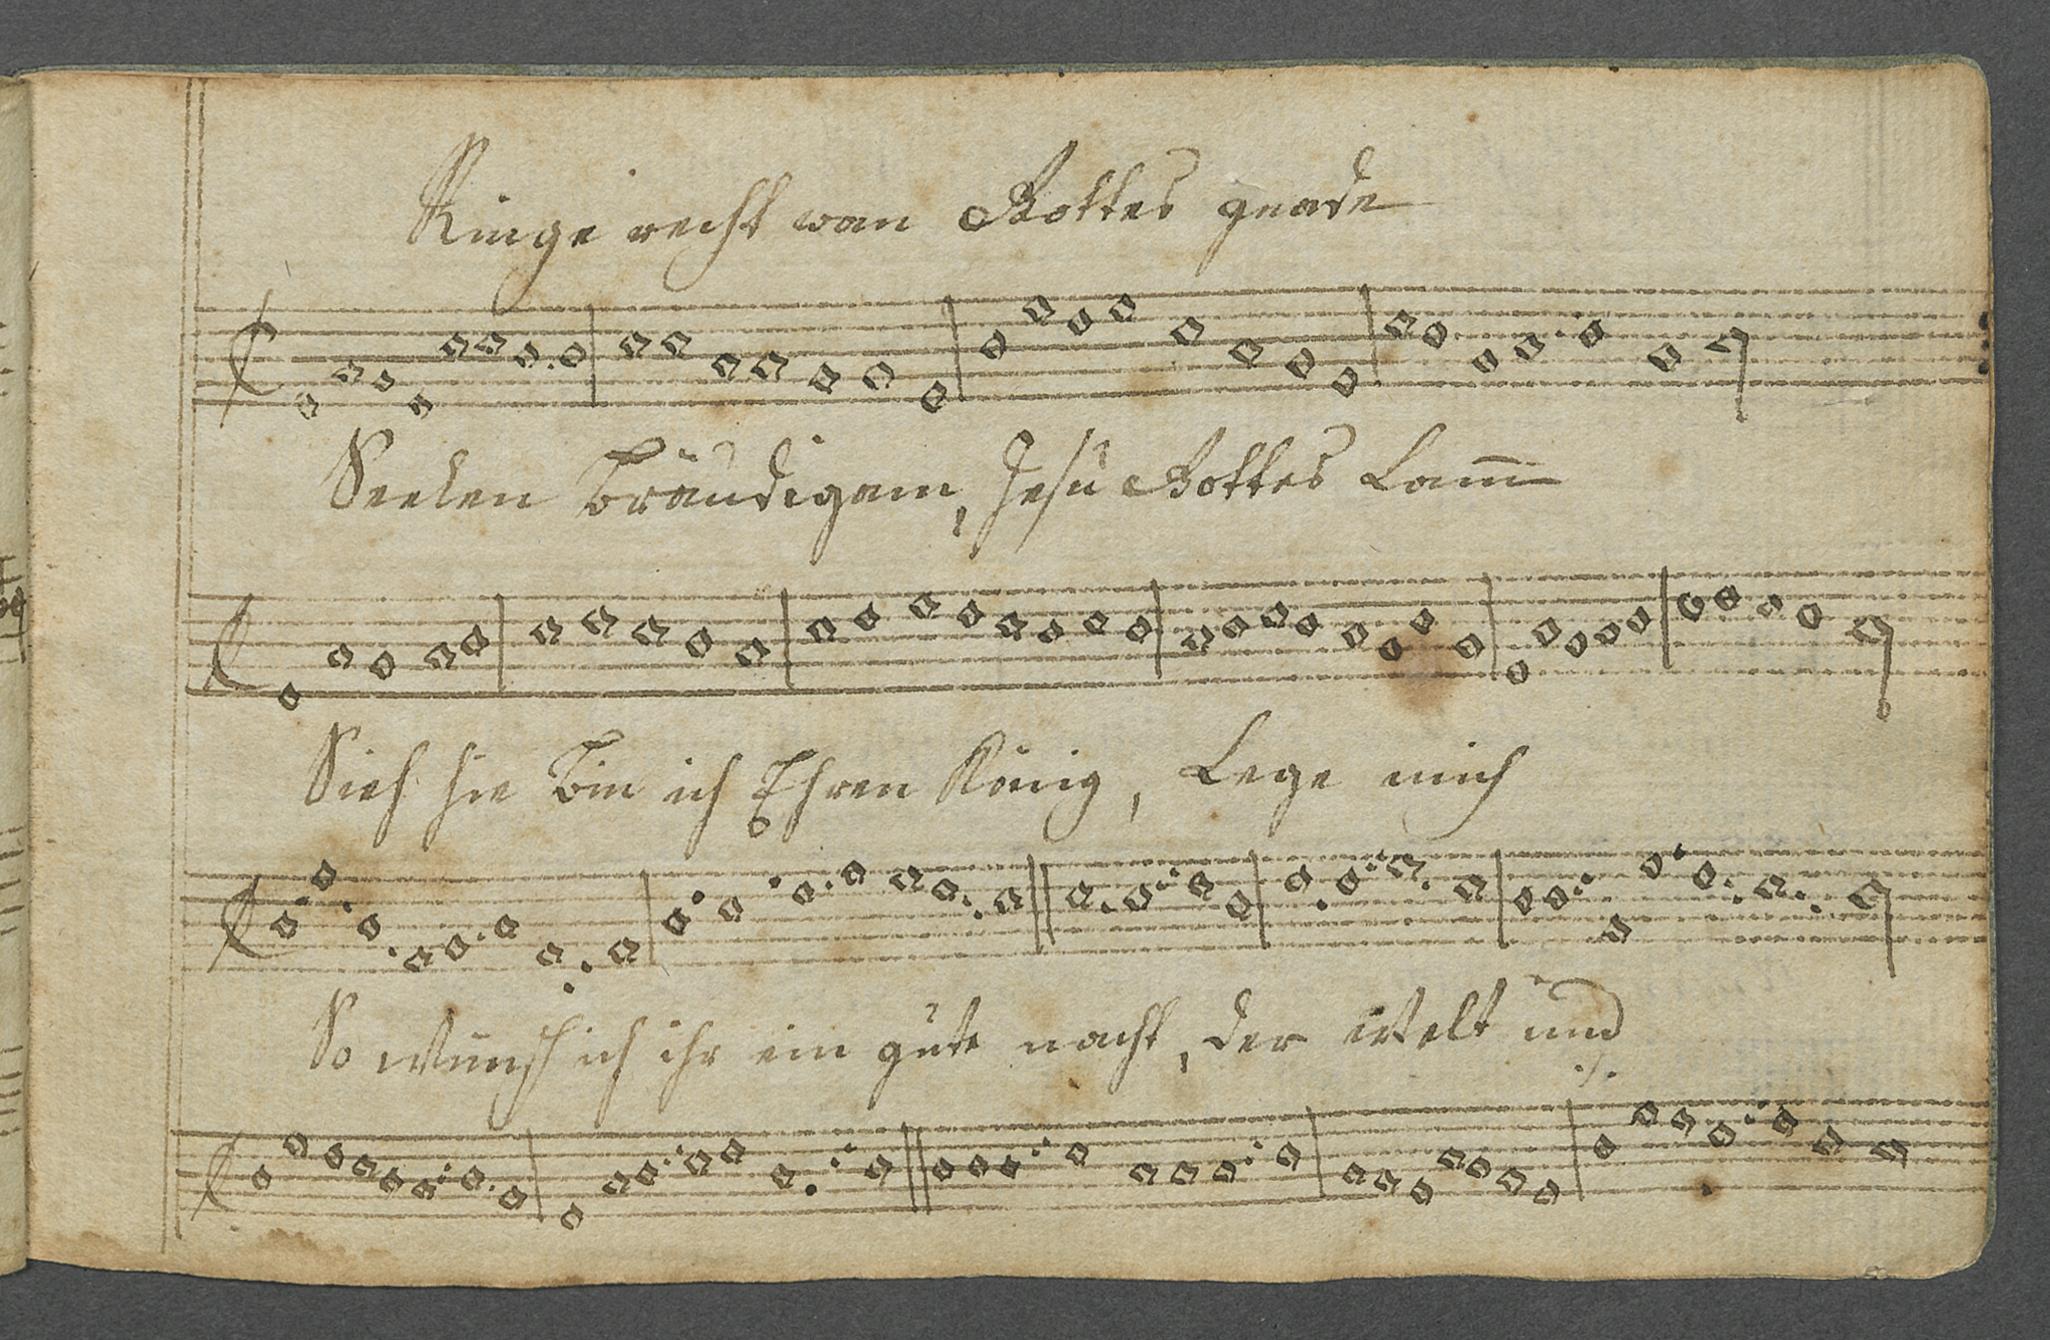 Ringe recht wan Gottes gnade
Seelen Bräudigam, Jesu Gottes Lam̅
Sieh hie bin ich Ehren König, Lege mich
So wünsch ich ihr ein gute nacht, der Welt und